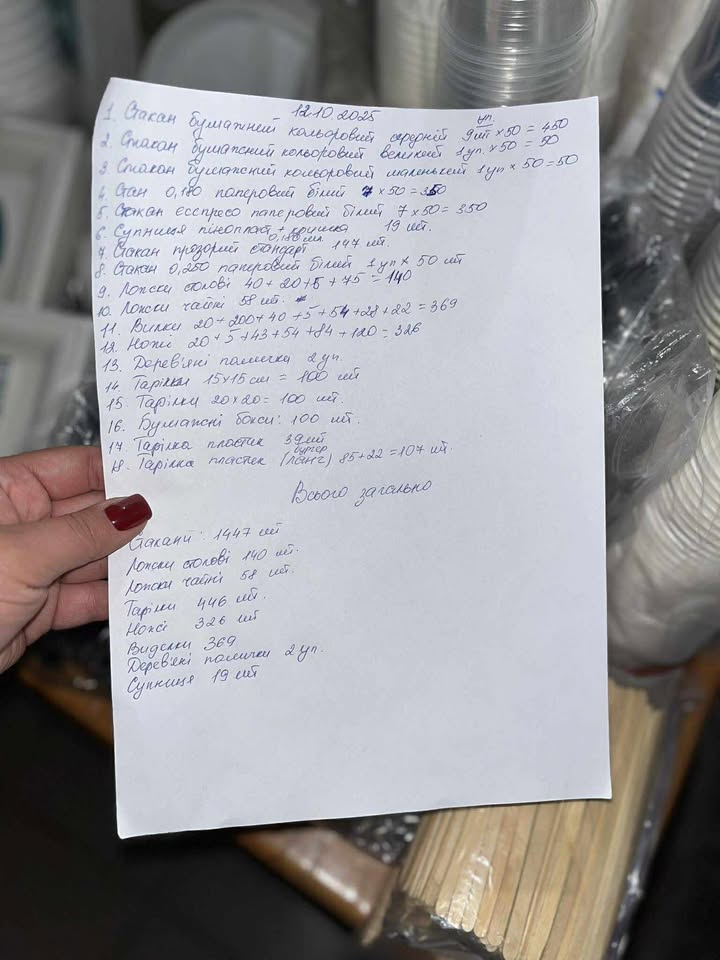 12.10.2025
1. Стакан бумажний кольоровий середній 9 уп. шт × 50 = 450
2. Стакан бумажний кольоровий великий 1 уп. × 50 = 50
3. Стакан бумажний кольоровий маленький 1 уп × 50 = 50
4. Стан 0,180 паперовий білий 7 × 50 = 350
5. Стакан есспресо паперовий білий 7 × 50 = 350
6. Супниця пінопласт + кришка 19 шт.
7. Стакан прозорий стандарт 0,180 мл 147 шт.
8. Стакан 0,250 паперовий білий 1 уп × 50 шт
9. Ложки столові 40 + 20 + 5 + 75 = 140
10. Ложки чайні 58 шт.
11. Вилки 20 + 200 + 40 + 5 + 54 + 28 + 22 = 369
12. Ножі 20 + 5 + 43 + 54 + 84 + 120 = 326
13. Дерев'яні паличка 2 уп.
14. Тарілки 15 × 15 см = 100 шт
15. Тарілки 20 × 20 = 100 шт.
16. Бумажні бокси: 100 шт.
17. Тарілка пластик 39 шт
18. Тарілка пластик (ланч) бургер 85 + 22 = 107 шт.
Всього загально
Стакани: 1447 шт
Ложки столові 140 шт.
Ложки чайні 58 шт.
Тарілки 446 шт.
Ножі 326 шт
Виделки 369
Дерев'яні палички 2 уп.
Супниця 19 шт